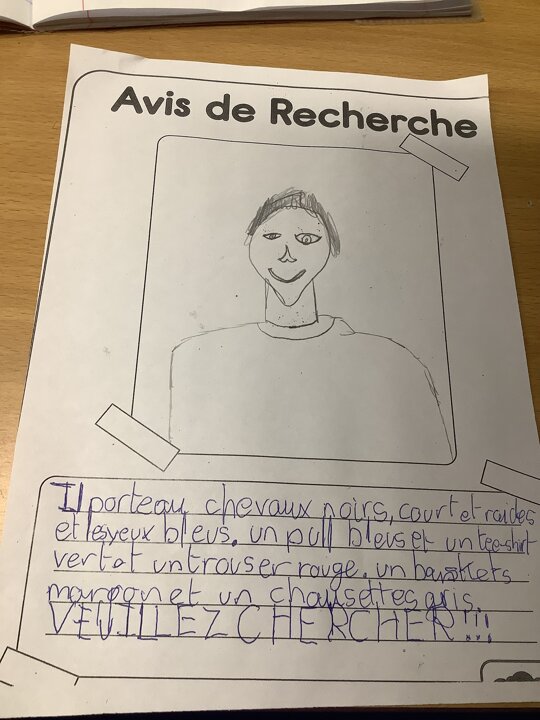 Avis de Recherche
Il porte au chevaux noirs, court et raides
et les yeux bleus. un pull bleus et un tee-shirt
vert et un trouser rouge. un baskets
marron et un chausettes gris.
VEUILLEZ CHERCHER!!!